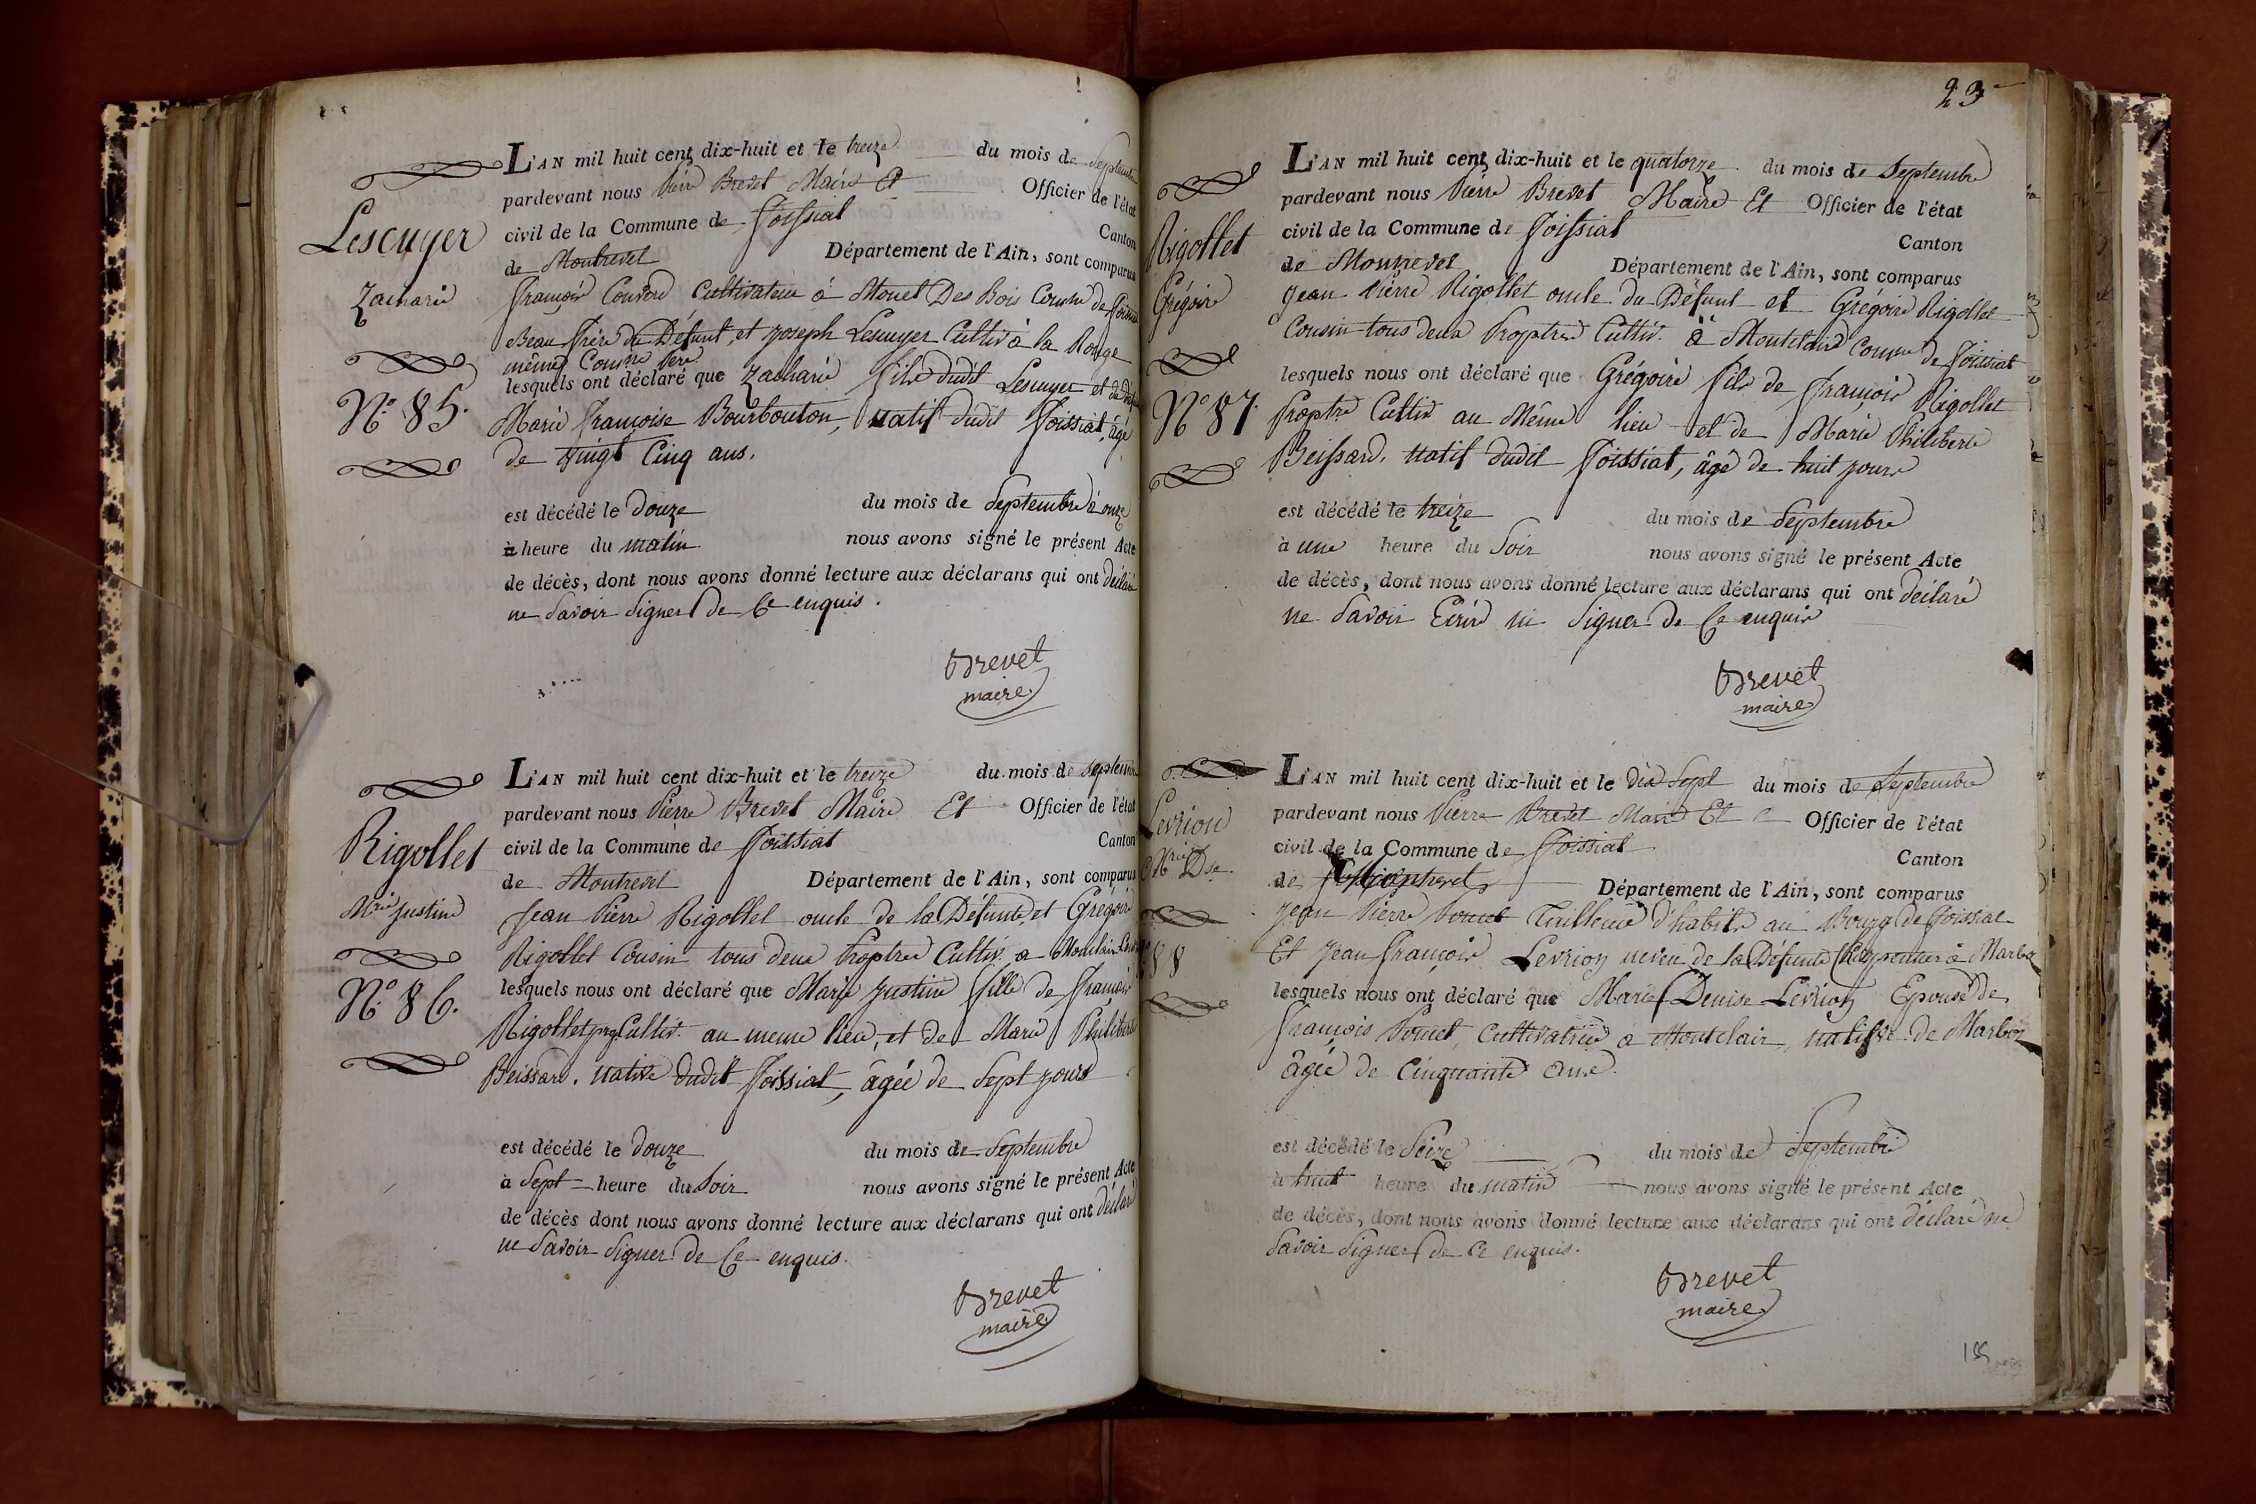 Lescuyer
Zacharie
N.º 85.
L'AN mil huit cent dix-huit et le treize du mois de Septembre
pardevant nous Pierre Brevet Maire Et Officier de l'état
civil de la Commune de Foissiat Canton
de Montrevel Département de l'Ain, sont comparus
François Cultivateur à Des Bois Comne de Foissiat
Beau frère du Défunt, et Joseph Lescuyer Cultivr à la Rouge
même Comne Père
lesquels ont déclaré que Zacharie fils dudit Lescuyer et de
Marie Françoise Bourbouton, natif dudit Foissiat, âgé
de vingt Cinq ans.
est décédé le Douze du mois de Septembre à onze
à heure du matin nous avons signé le présent Acte
de décès, dont nous avons donné lecture aux déclarans qui ont déclaré
ne Savoir Signer de Ce enquis.
Brevet
maire
Rigollet
Mrie Justine
N.º 86.
L'AN mil huit cent dix-huit et le treize du mois de septembre
pardevant nous Pierre Brevet Maire Et Officier de l'état
civil de la Commune de Foissiat Canton
de Montrevel Département de l'Ain, sont comparus
Jean Pierre Rigollet oncle de la Défunte, et Grégoire
Rigollet Cousin tous deux Proptres Cultivr a Montclair
lesquels nous ont déclaré que Marie Justine fille de François
Rigollet Cultivr au meme lieu, et de Marie Philiberte
Beissard. native dudit Foissiat, âgée de Sept jours
est décédé le Douze du mois de Septembre
à Sept heure du Soir nous avons signé le présent Acte
de décès dont nous avons donné lecture aux déclarans qui ont déclaré
ne Savoir Signer de Ce enquis.
Brevet
maire
23
Rigollet
Grégoire
Nº 87.
L'AN mil huit cent dix-huit et le quatorze du mois de Septembre
pardevant nous Pierre Brevet Maire Et Officier de l'état
civil de la Commune de Foissiat Canton
de Montrevel Département de l'Ain, sont comparus
Jean Pierre Rigollet oncle du Défunt et Grégoire Rigollet
Cousin tous deux Proptres Cultivr. à Montclair Comne de Foissiat
lesquels nous ont déclaré que Grégoire fils de François Rigollet
Proptre Cultivr au Même lieu et de Marie Philiberte
Beissard. natif dudit Foissiat, âgé de huit jours
est décédé le treize du mois de Septembre
à une heure du Soir nous avons signé le présent Acte
de décès, dont nous avons donné lecture aux déclarans qui ont déclaré
ne Savoir Ecrire ni Signer de Ce enquis
Brevet
maire
Levrion
Mrie Dse
88
L'AN mil huit cent dix-huit et le dix Sept du mois de Septembre
pardevant nous Pierre Brevet Maire Et Officier de l'état
civil de la Commune de Foissiat Canton
de Montrevel Département de l'Ain, sont comparus
Jean Pierre Tailleur d'habits au Bourg de Foissiat
Et Jean François Levrion neveu de la Défunte Charpentier à Marboz
lesquels nous ont déclaré que Marie Denise Levrion Epouse de
François Cultivatrice a Montclair, native de Marboz
âgée de Cinquante ans.
est décédé le Seize du mois de Septembre
à huit heure du matin nous avons signé le présent Acte
de décès, dont nous avons donné lecture aux déclarans qui ont déclaré ne
Savoir Signer de Ce enquis.
Brevet
maire